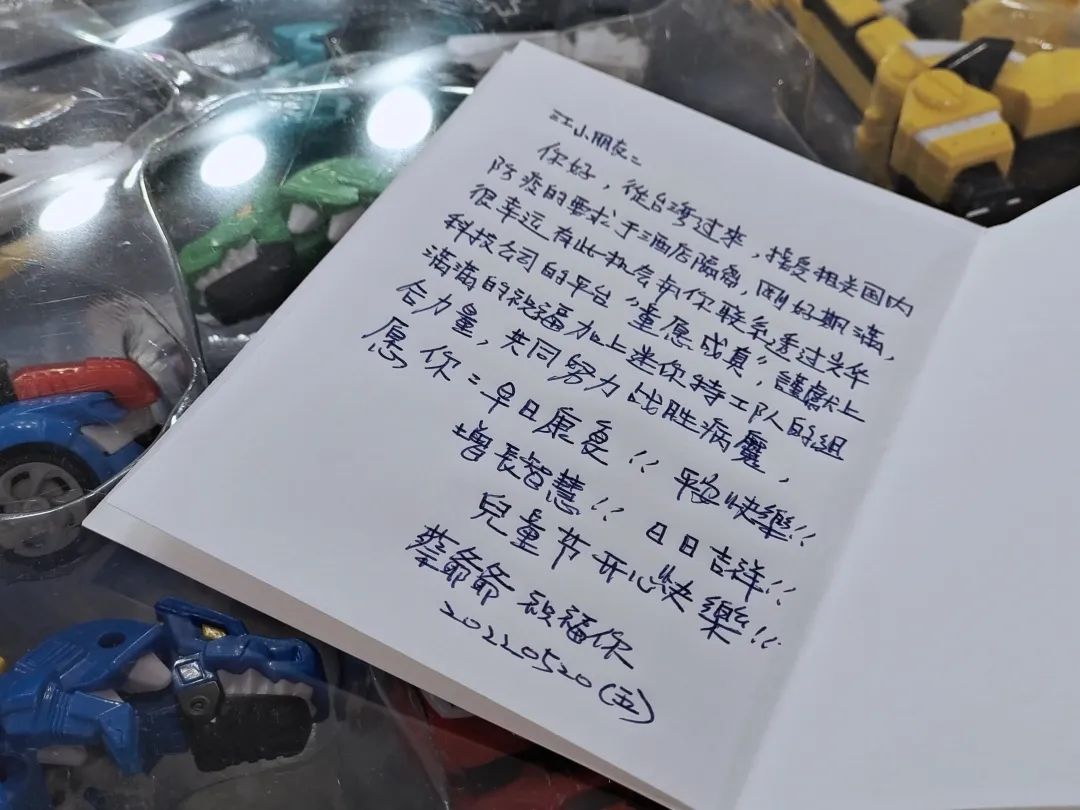 江小朋友：
你好，從台湾过来，接受相关国内
防疫的要求于酒店隔离，刚好期满，
很幸运有此机会与你联系透过光华
科技公司的平台“童愿成真”，謹獻上
满满的祝福加上迷你特工队的组
合力量，共同努力战胜病魔，
愿你：早日康复！！平安快樂！！
增長智慧！！日日吉祥！！
兒童节开心快樂！！
蔡爺爺 祝福你
20220520（五）